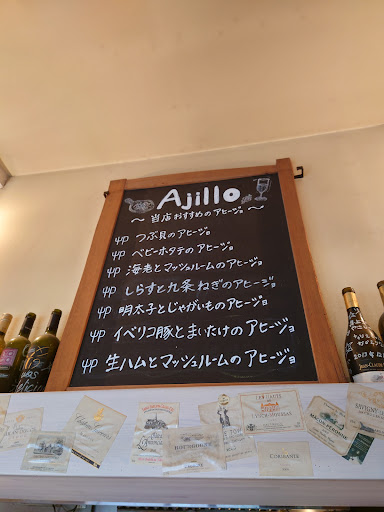 Ajillo
〜 当店おすすめのアヒージョ 〜
つぶ貝のアヒージョ
ベビーホタテのアヒージョ
海老とマッシュルームのアヒージョ
しらすと九条ねぎのアヒージョ
明太子とじゃがいものアヒージョ
イベリコ豚とまいたけのアヒージョ
生ハムとマッシュルームのアヒージョ